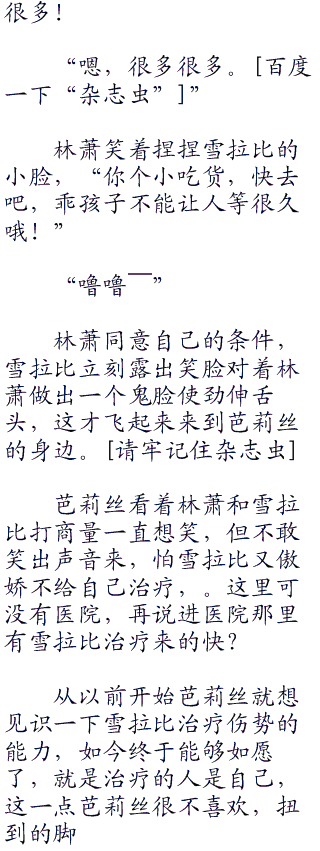 很多！
“嗯，很多很多。[百度
一下“杂志虫”]”
林萧笑着捏捏雪拉比的
小脸，“你个小吃货，快去
吧，乖孩子不能让人等很久
哦！”
“噜噜——”
林萧同意自己的条件，
雪拉比立刻露出笑脸对着林
萧做出一个鬼脸使劲伸舌
头，这才飞起来来到芭莉丝
的身边。[请牢记住杂志虫]
芭莉丝看着林萧和雪拉
比打商量一直想笑，但不敢
笑出声音来，怕雪拉比又傲
娇不给自己治疗，。这里可
没有医院，再说进医院那里
有雪拉比治疗来的快？
从以前开始芭莉丝就想
见识一下雪拉比治疗伤势的
能力，如今终于能够如愿
了，就是治疗的人是自己，
这一点芭莉丝很不喜欢，扭
到的脚